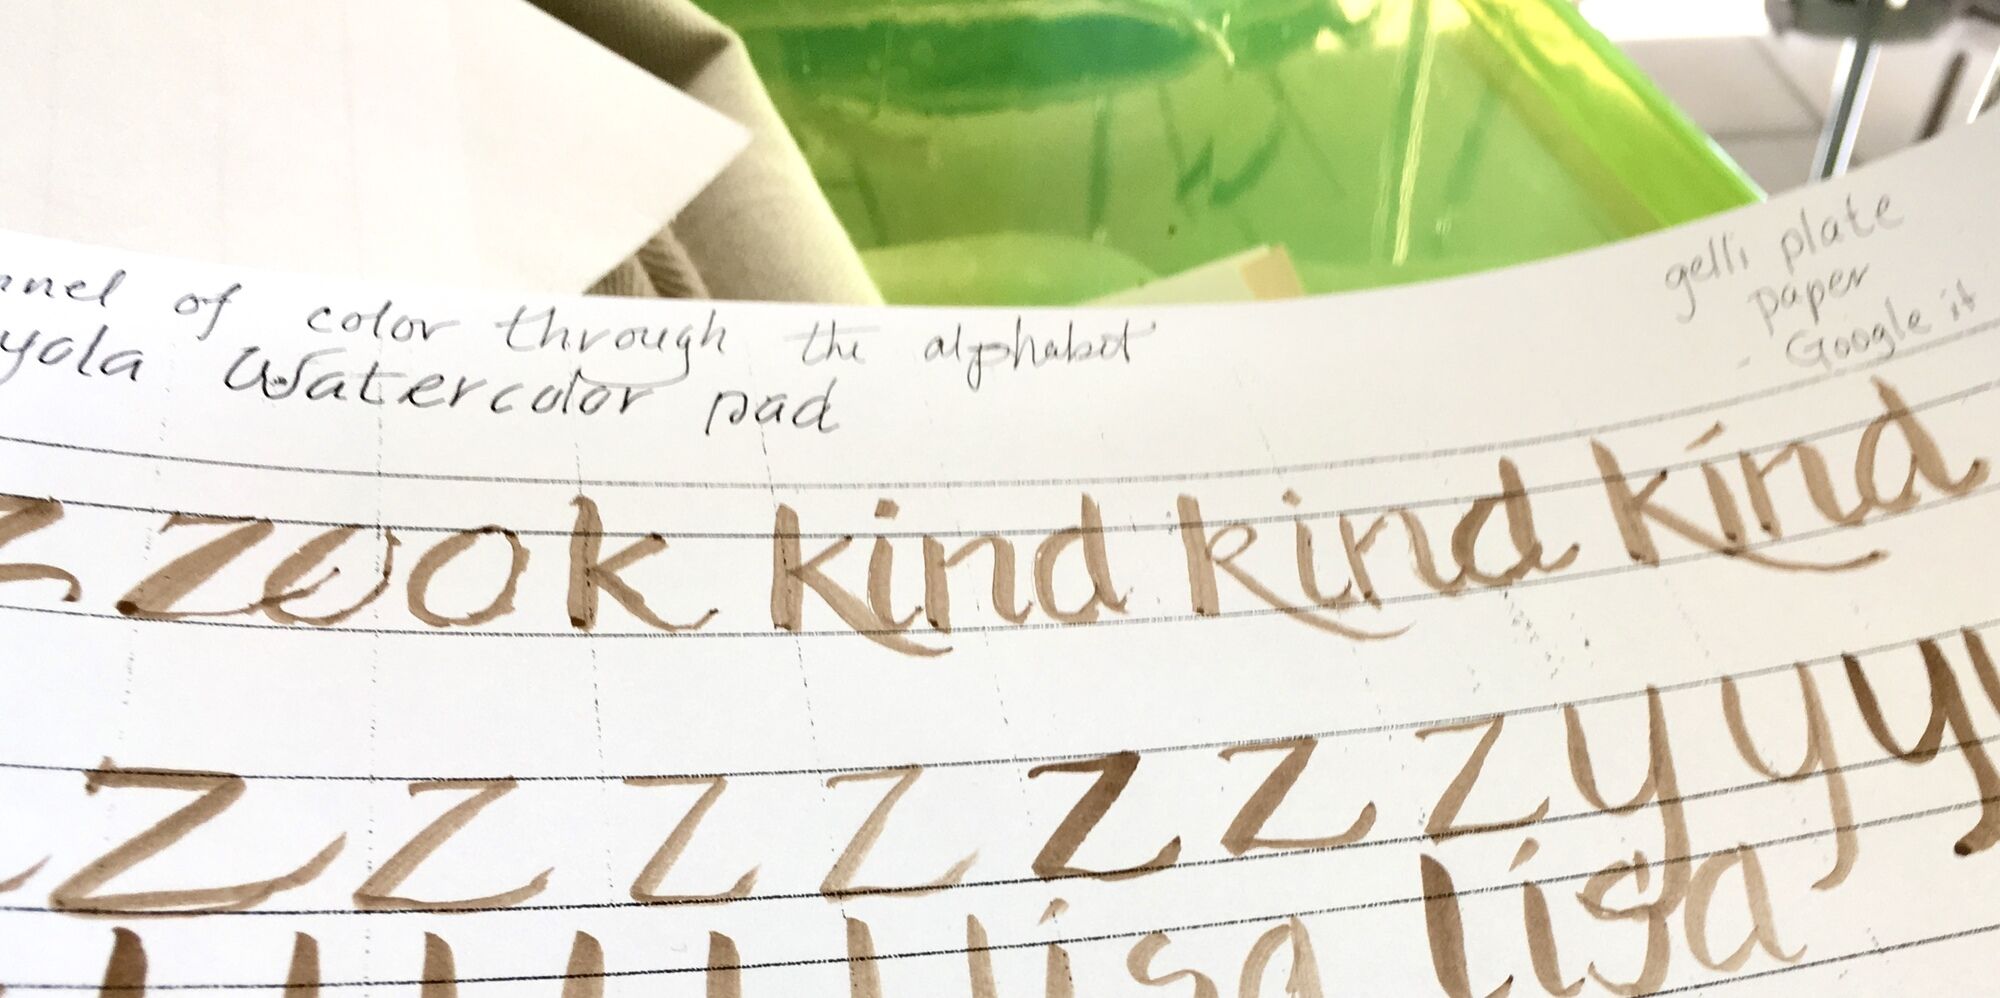 nnel of color through the alphabet
yola Watercolor pad
gelli plate
paper
- Google it
z zook kind kind kind
z z z z z z z y y y
lisa lisa